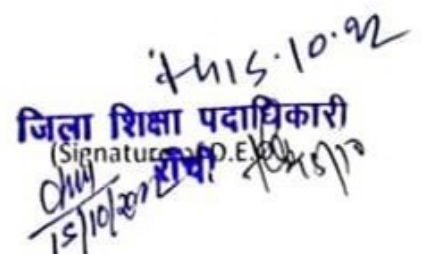 15.10.22
जिला शिक्षा पदाधिकारी
(Signature D.E.O)
राँची
15/10/2022 15/10